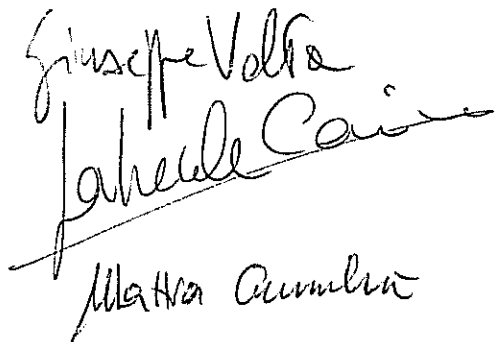 Giuseppe Volta
Gabriele Caino
Mattia